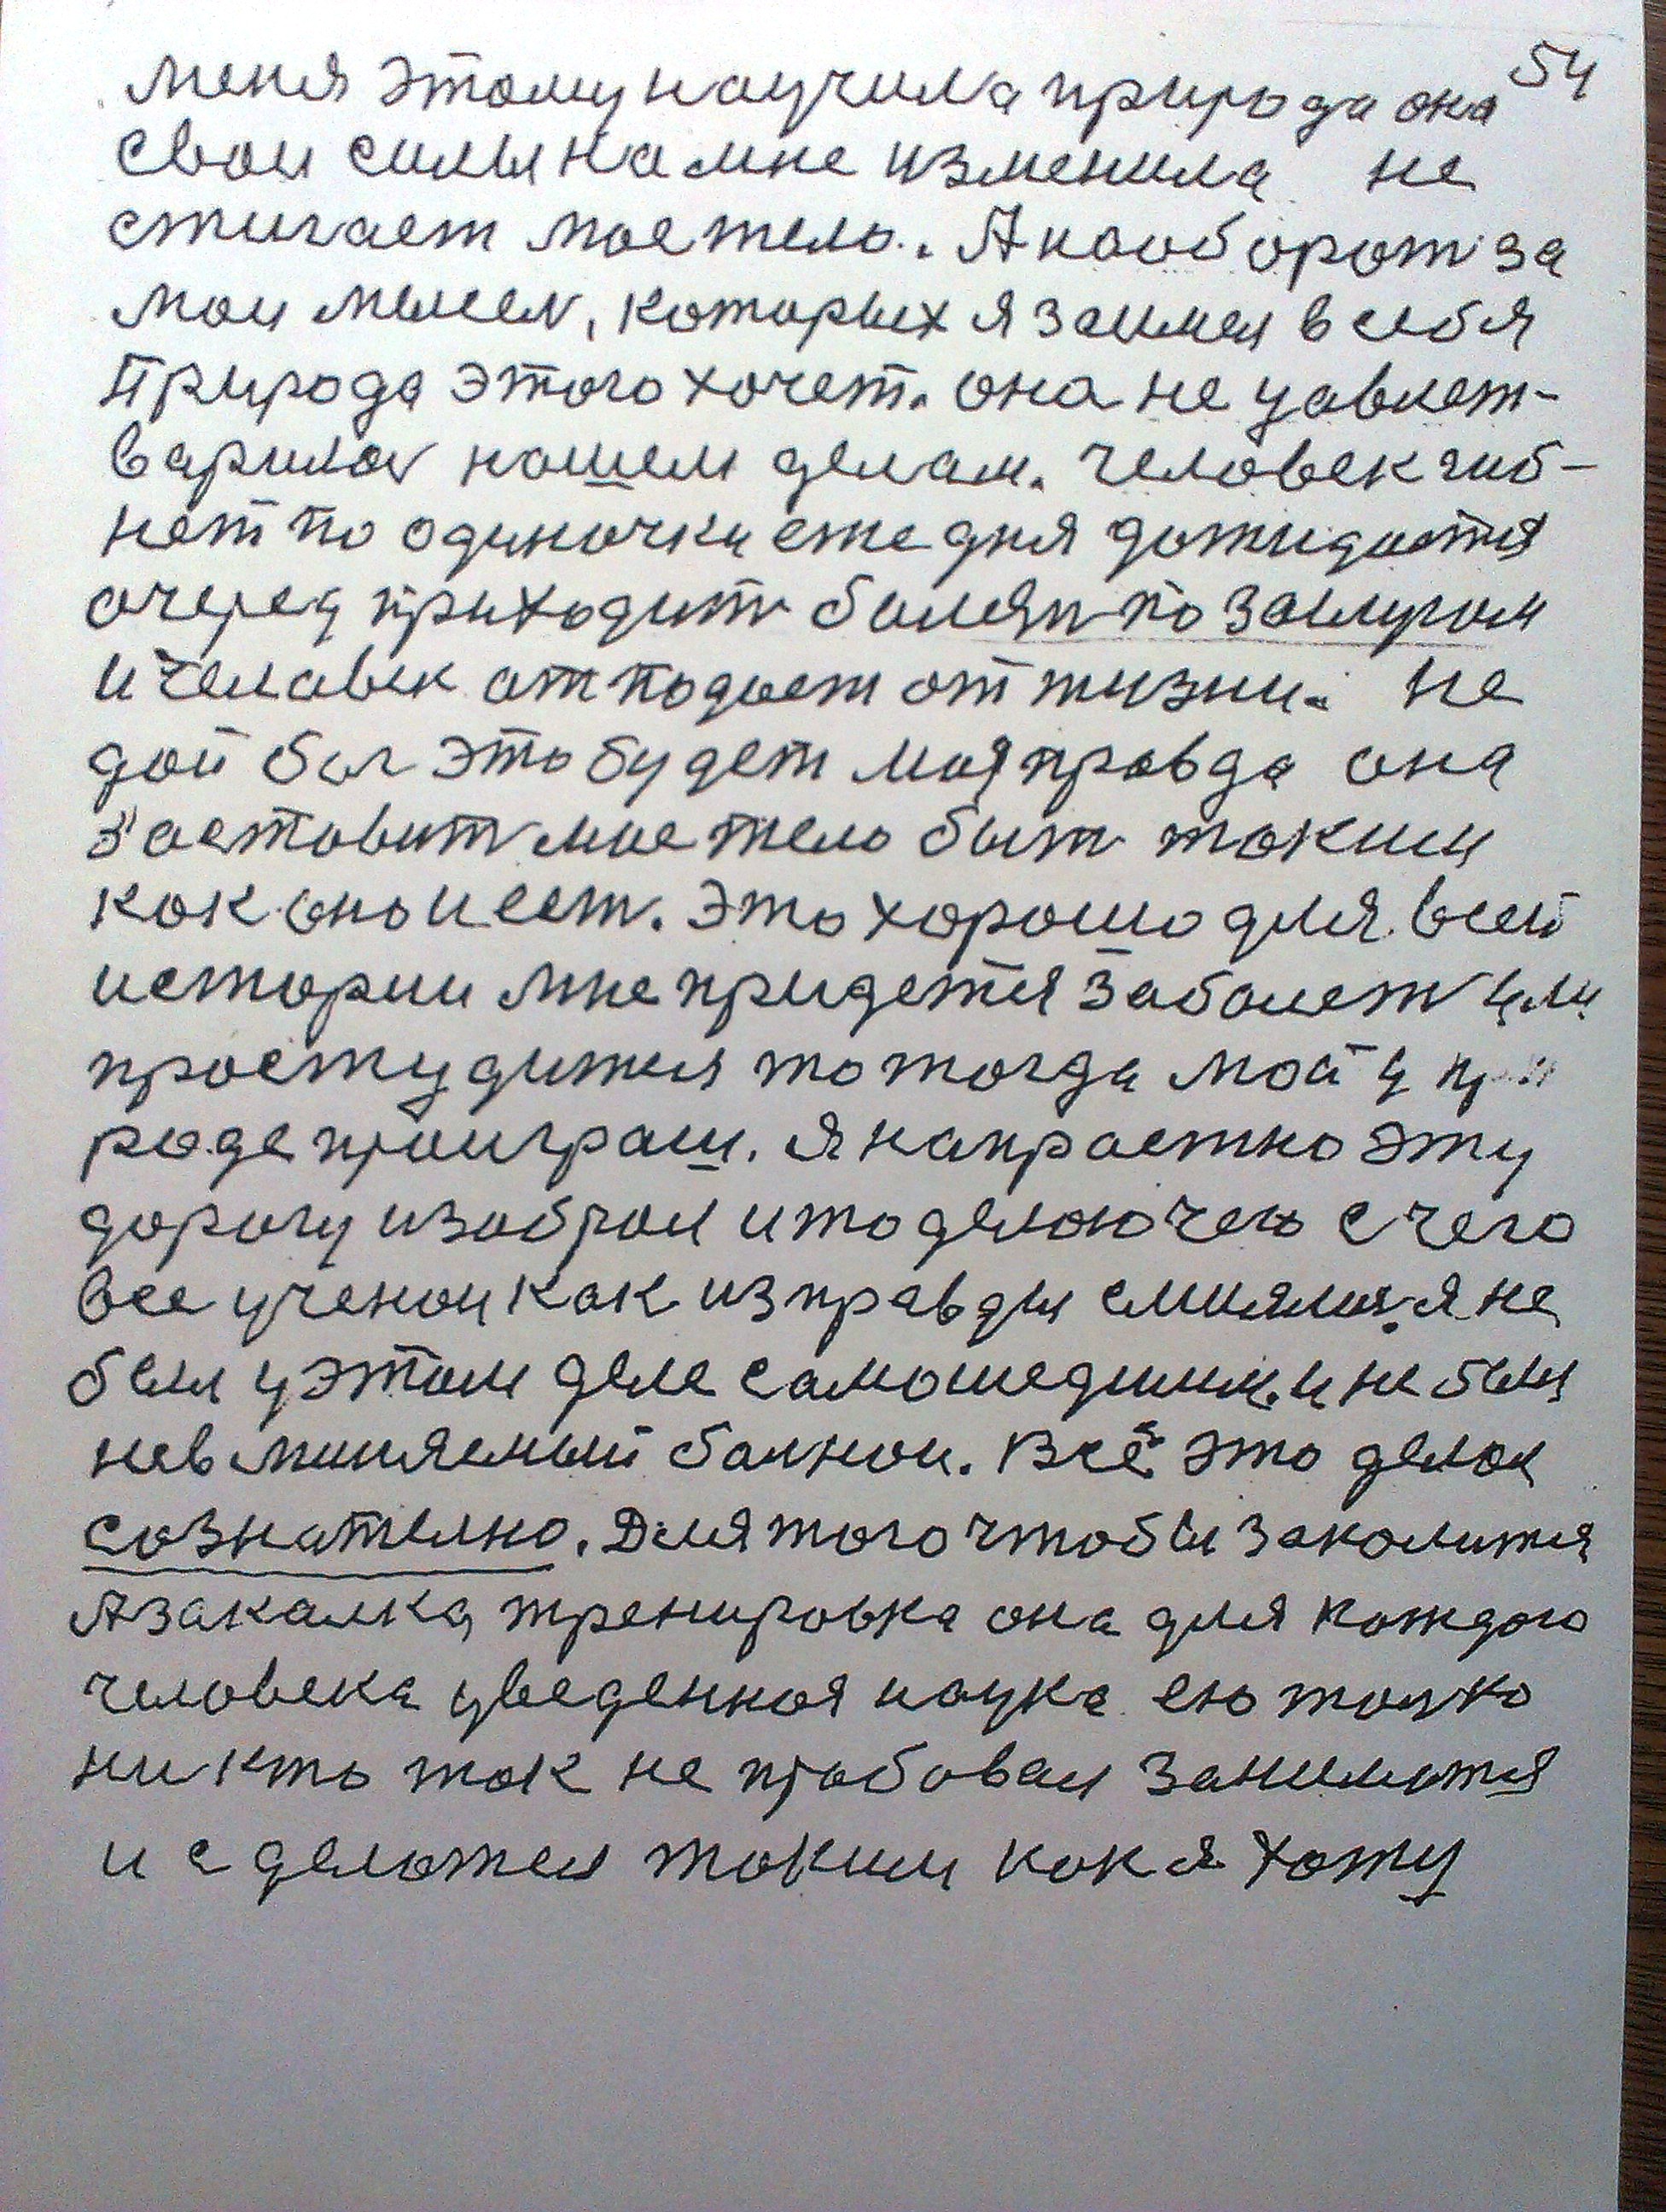 54
меня этому научила природа она
свои силы на мне изменила не
стигает мое тело. А наоборот за
мои мысел, которых я занял в себя
Природа этого хочет. она не удовлет-
варила нашем делам. человек гиб-
нет по одиночки ежедня дожидается
очеред приходит болезн по заслугом
и человек отподает от жизни. не
дой бог это будет моя правда она
застовит мое тело быт токим
кок оно и ест. Это хорошо для всей
истории мне придется заболет или
простудится то тогда мой у при
роде проиграш. я напрастно эту
дорогу изобрал и то делаю чего с чего
все ученои как из правды смиялис я не
был у этом деле самошедшим и не был
невминяемый болнои. Всё это делаю
сознателно. Для того чтобы закалится
А закалка, тренировка она для каждого
человека уведенная наука ею толко
ни кто так не пробовал занимется
и сделатся токим кок я хожу